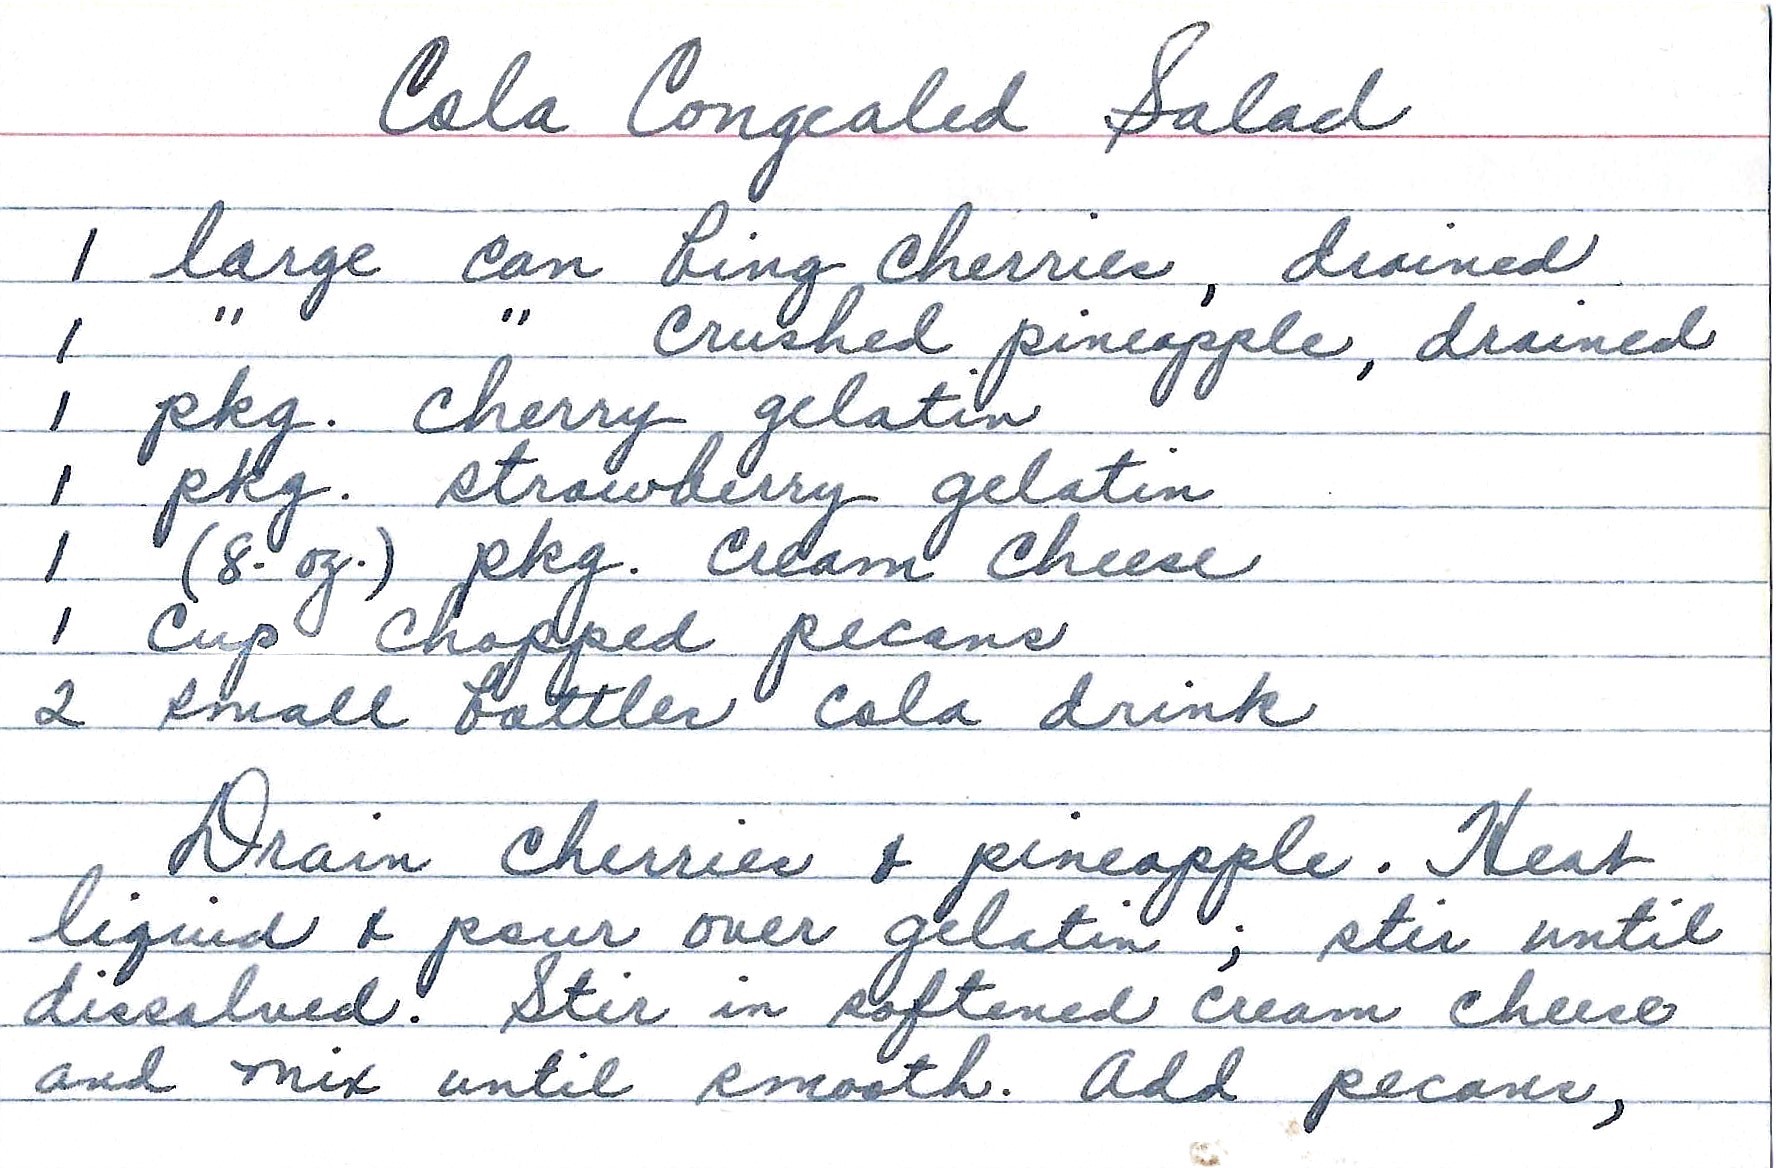 Cola Congealed Salad
1 large can bing cherries, drained
1 " " crushed pineapple, drained
1 pkg. cherry gelatin
1 pkg. strawberry gelatin
1 (8-oz.) pkg. cream cheese
1 cup chopped pecans
2 small bottles cola drink
Drain cherries & pineapple. Heat
liquid & pour over gelatin; stir until
dissolved. Stir in softened cream cheese
and mix until smooth. Add pecans,